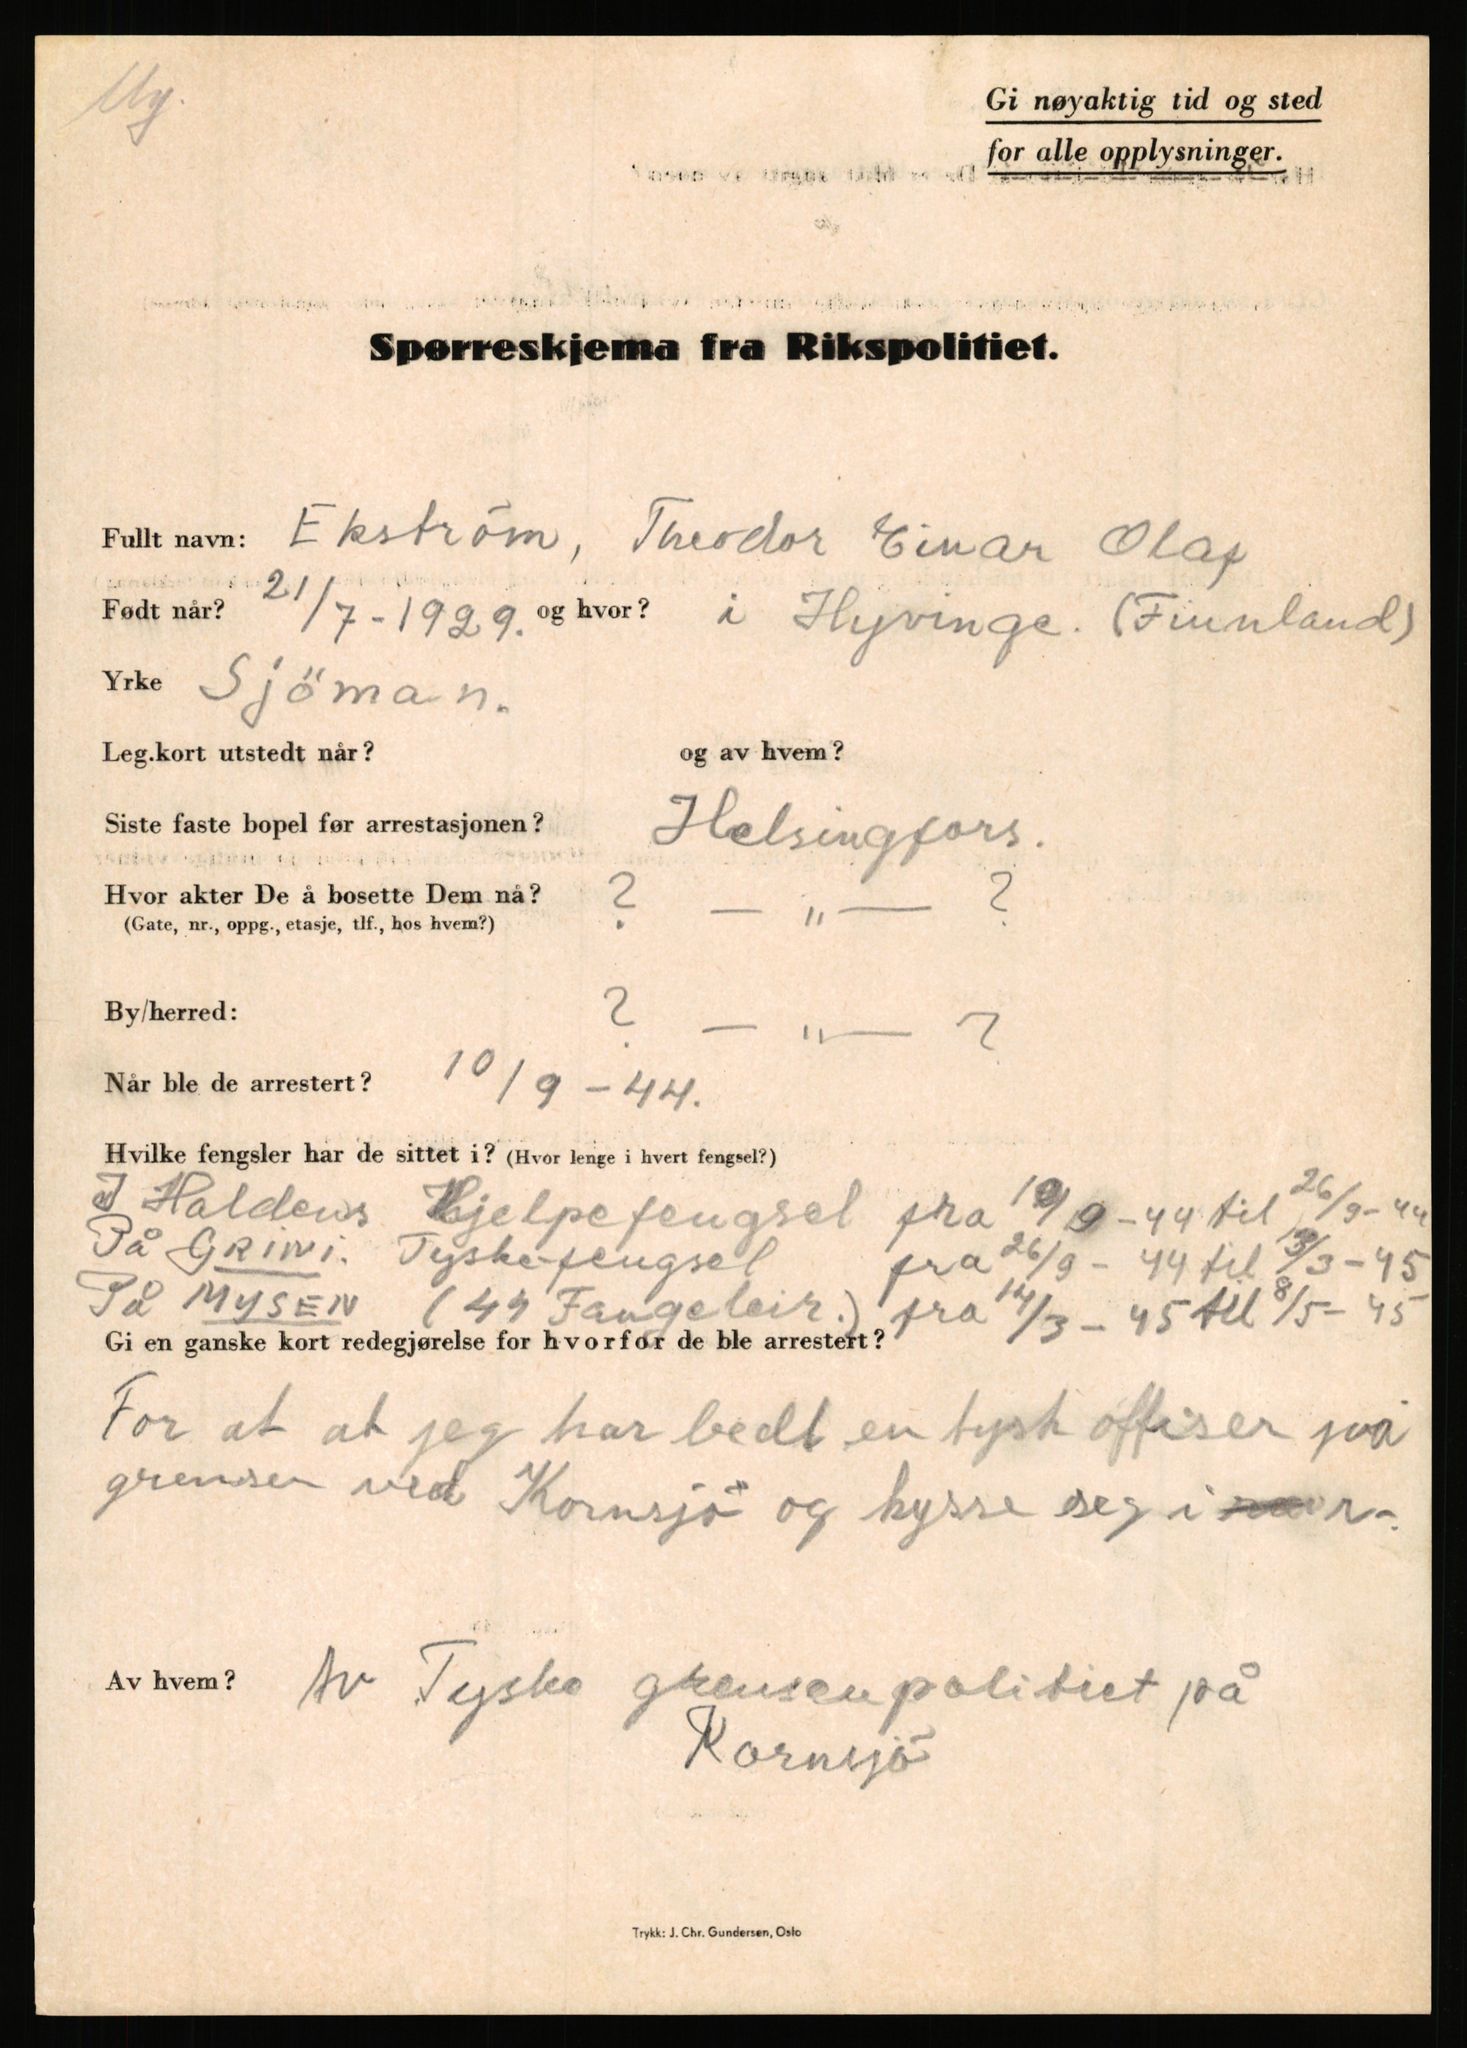 My.
Gi nøyaktig tid og sted
for alle opplysninger.
Spørreskjema fra Rikspolitiet.
Fullt navn: Ekström, Theodor Einar Olaf
Født når? 21/7-1929. og hvor? i Hyvinge. (Finnland)
Yrke Sjöman.
Leg.kort utstedt når? og av hvem?
Siste faste bopel før arrestasjonen? Helsingfors.
Hvor akter De å bosette Dem nå? ? — „ — ?
(Gate, nr., oppg., etasje, tlf., hos hvem?)
By/herred: ? — „ — ?
Når ble de arrestert? 10/9-44.
Hvilke fengsler har de sittet i? (Hvor lenge i hvert fengsel?)
I Haldens Hjelpefengsel fra 10/9-44 til 26/9-44
På GRINI. Tyske-fengsel fra 26/9-44 til 13/3-45
På MYSEN (Fangeleir.) fra 14/3-45 til 8/5-45
Gi en ganske kort redegjørelse for hvorfor de ble arrestert?
For at at jeg har bedt en tysk offiser på
grensen ved Kornsjö og kysse seg i r-.
Av hvem? Av Tyske grensenpolitiet på
Kornsjö
Trykk: J. Chr. Gundersen, Oslo